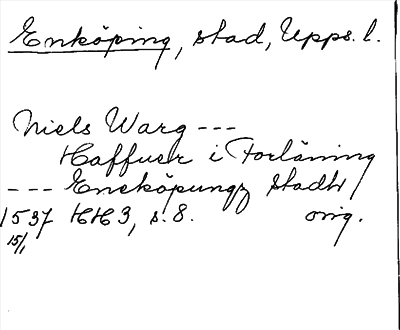 Enköping, stad, Upps. l.
Niels Warg ---
Haffuer i Forläning
--- Eneköpungz Stadh
1537 HH3, s. 8. orig.
15/1